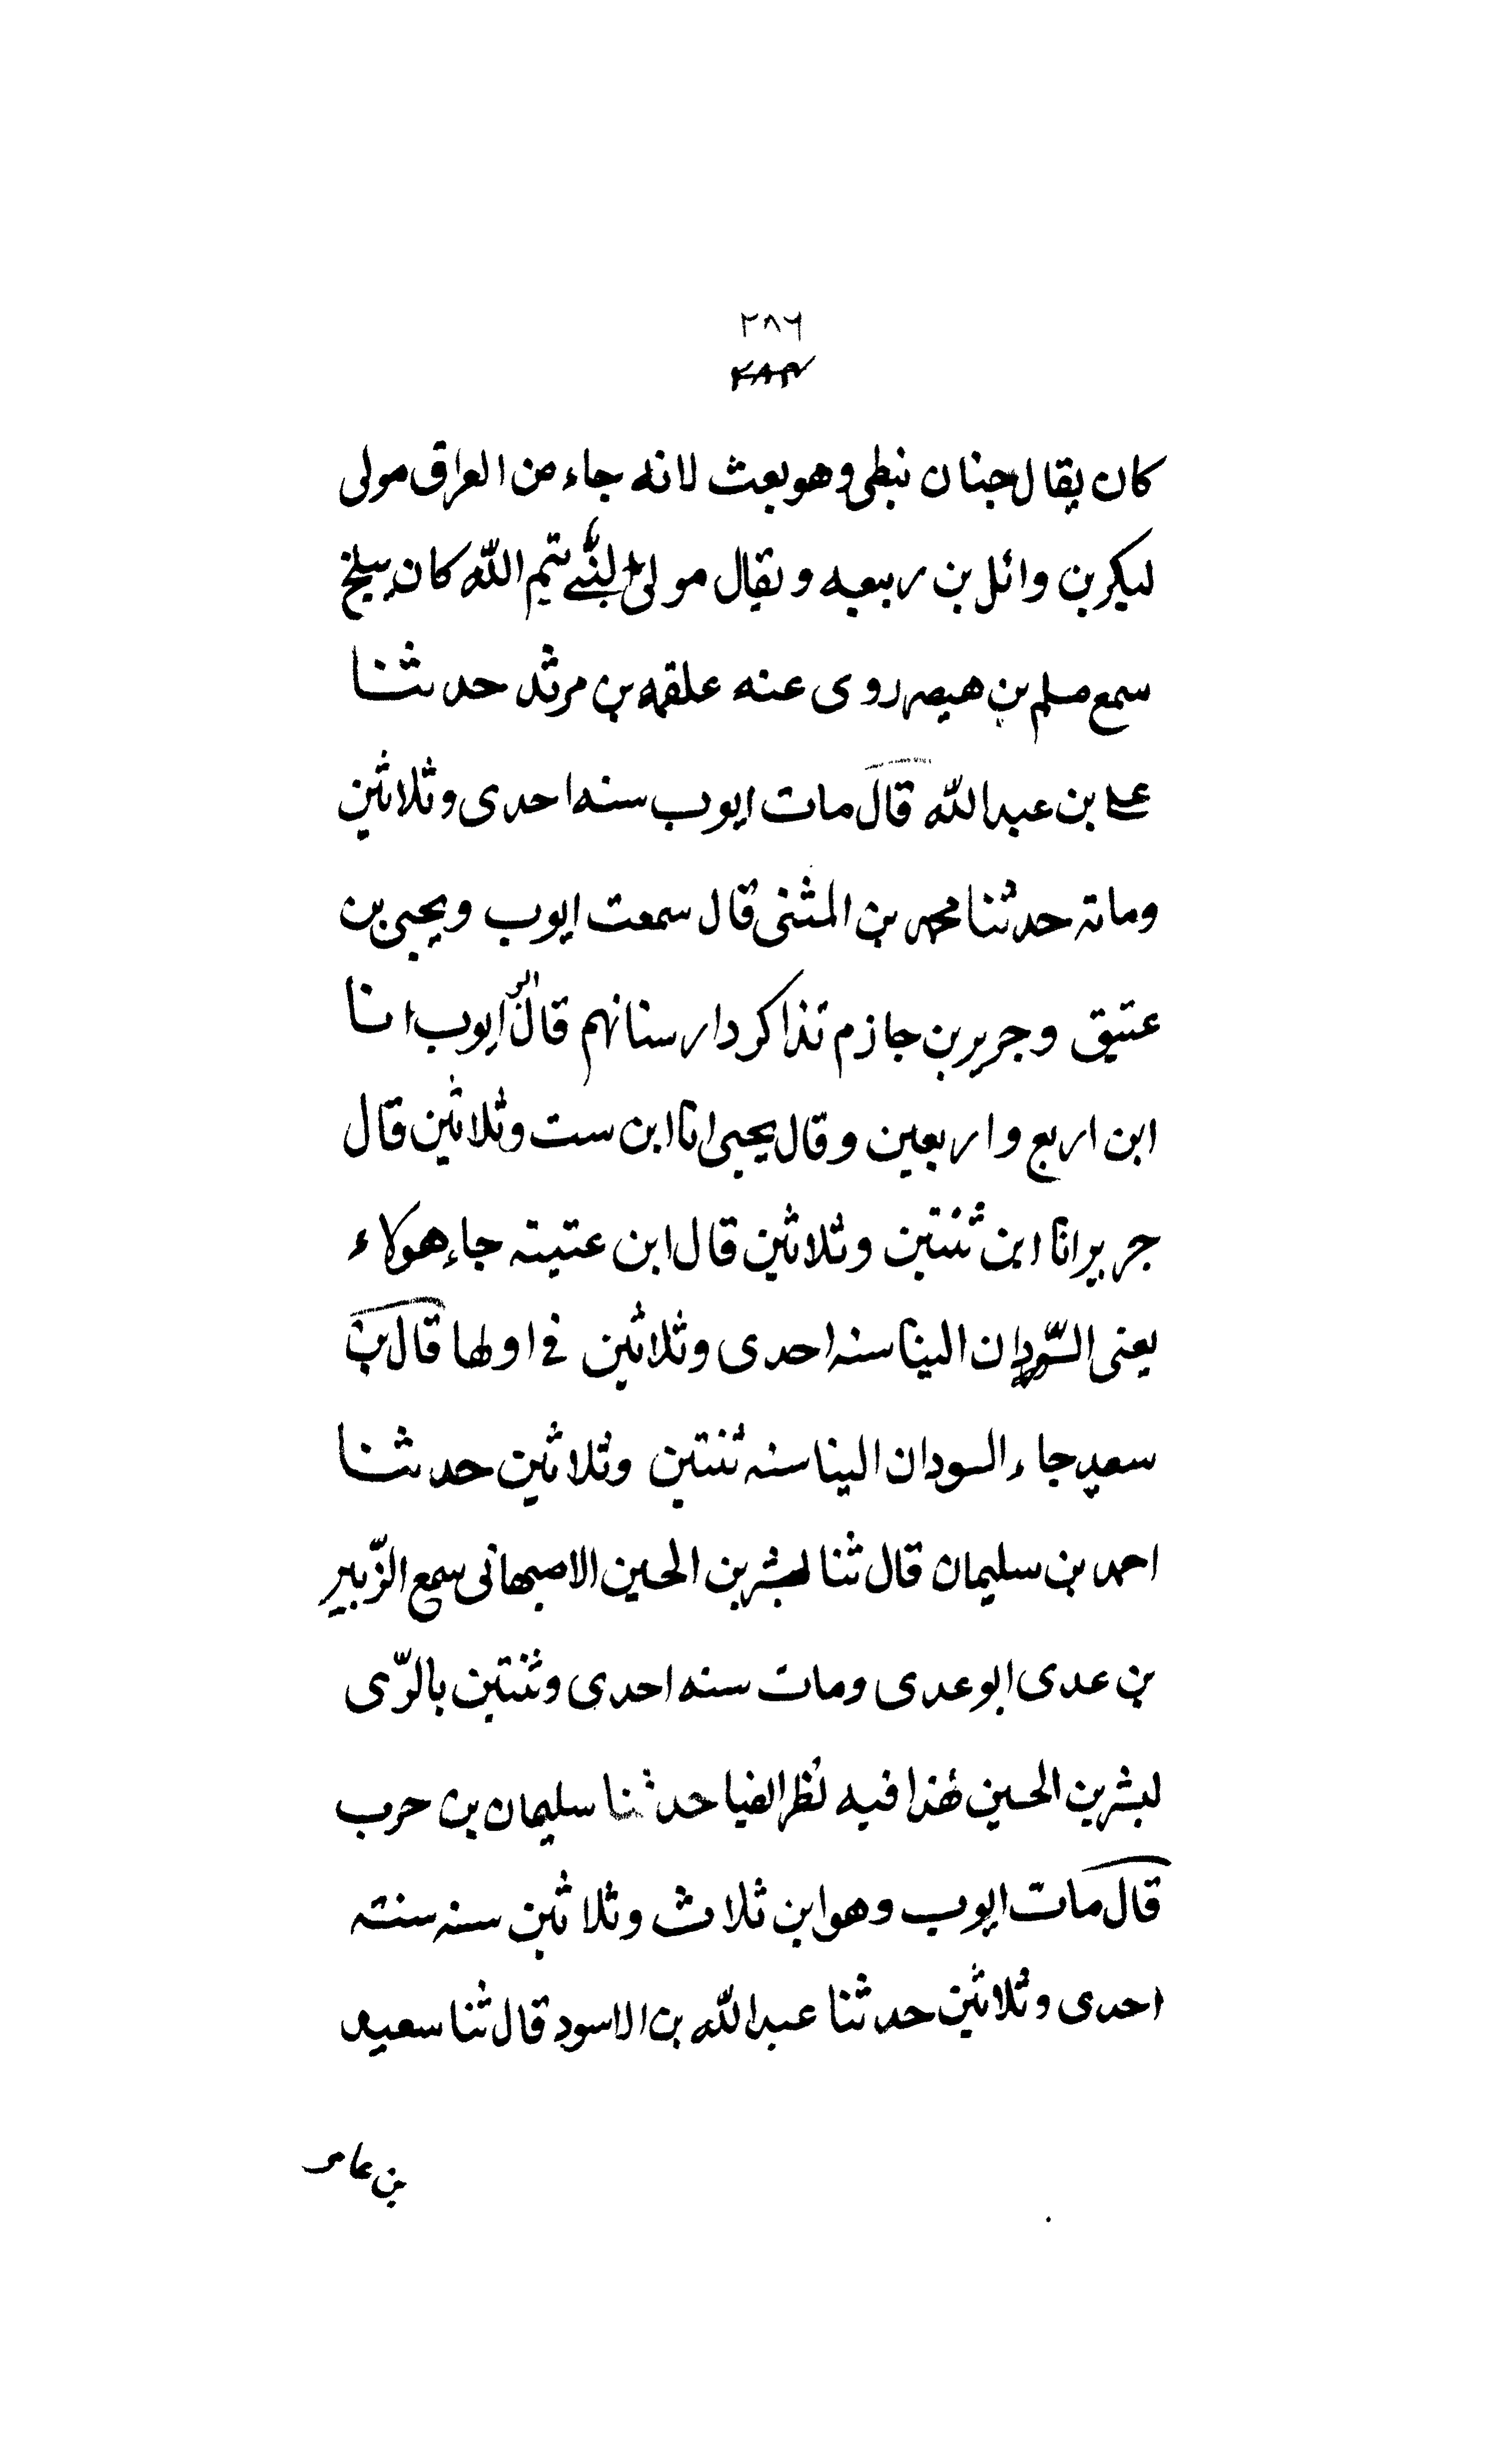 ٢٨٦
كان يقال حنان نبطى وهو بعث لانه جاء من العراق مولى
لبكر بن وائل بن ربيعه ويقال مولى لبنى تيم الله كان ببلخ
سمع مسلم بن هيصم روى عنه علقمه بن مرثد حدثنا
على بن عبد الله قال مات ايوب سنه احدى وثلاثين
ومائه حدثنا محمد بن المثنى قال سمعت ايوب ويحيى بن
عتيق وجرير بن جازم تذاكردا رسنانهم قال ايوب انا
ابن اربع واربعين وقال يحيى انا ابن ست وثلاثين قال
جرير انا ابن ثنتين وثلاثين قال ابن عتيبته جاء هولاء
يعنى السّودان الينا سنه احدى وثلاثين فى اولها قال بن
سعيد جاء السودان الينا سنه ثنتين وثلاثين حدثنا
احمد بن سليمان قال ثنا بشر بن الحسين الاصبهانى سمع الزّبير
بن عدى ابو عدى ومات سنه احدى وثنتين بالرّى
لبشر بن الحسين هذا فيه نظر ايضا حدثنا سليمان بن حرب
قال مات ايوب وهو ابن ثلاث وثلاثين سنه سنته
احدى وثلاثين حدثنا عبد الله بن الاسود قال ثنا سعيد
بن عامر